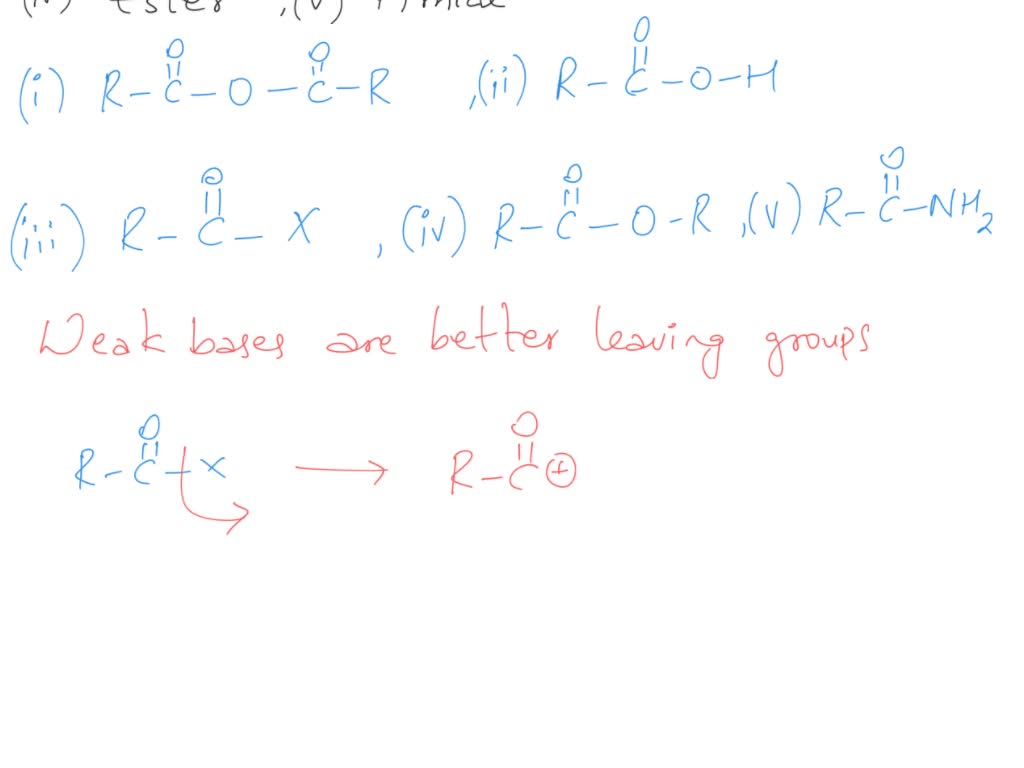 (iv) Ester ,(v) Amide
(i) R-C(=O)-O-C(=O)-R ,(ii) R-C(=O)-O-H
(iii) R-C(=O)-X ,(iv) R-C(=O)-O-R ,(v) R-C(=O)-NH2
Weak bases are better leaving groups
R-C(=O)-X → R-C(=O)⊕